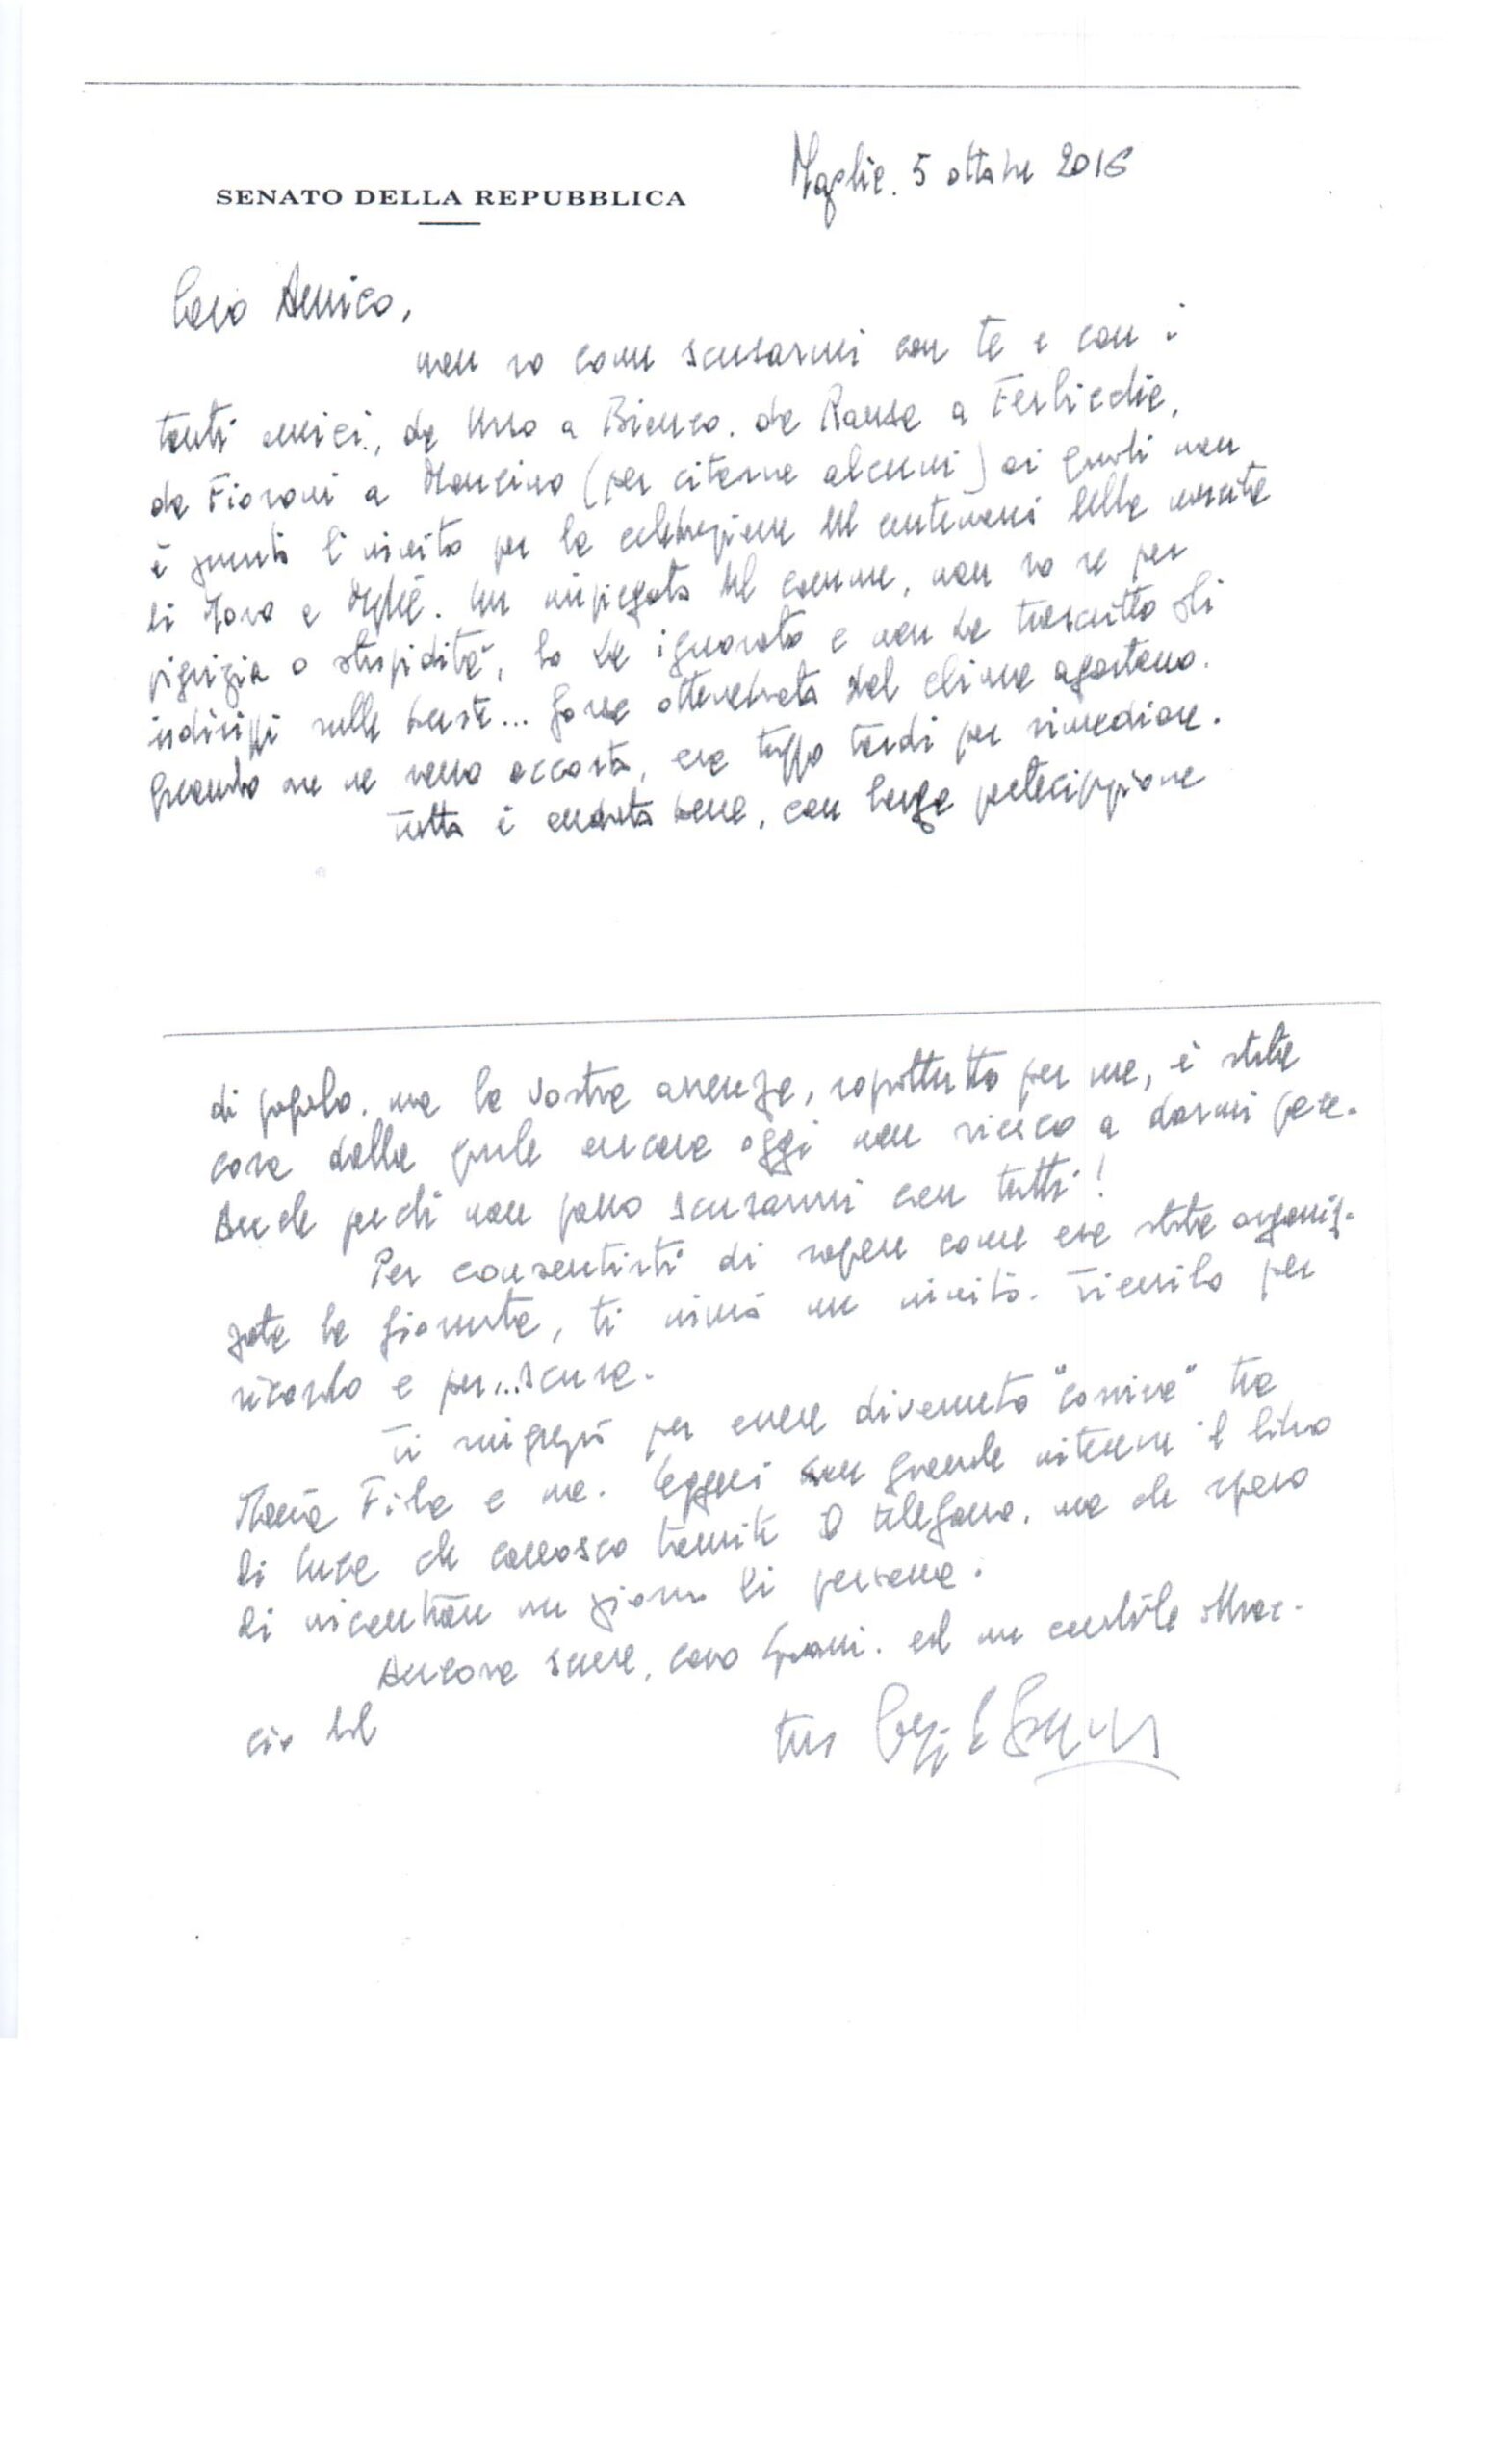 Maglie. 5 ottobre 2016
SENATO DELLA REPUBBLICA
Caro Amico,
non so come scusarmi con te e con i
tanti amici, da Urso a Bianco. da Ranza a Ferlicchia,
da Fioroni a Mancino (per citarne alcuni) ai quali non
è giunto l'invito per la celebrazione del centenario della nascita
di Moro a Maglie. Un impiegato del comune, non so se per
pigrizia o stupidità, lo ha ignorato e non ha trascritto gli
indirizzi sulle buste... forse ottenebrato dal clima agostano.
Quando me ne sono accorto, era troppo tardi per rimediare.
Tutto è andato bene, con larga partecipazione
di popolo. ma la vostra assenza, soprattutto per me, è stata
cosa dalla quale ancora oggi non riesco a darmi pace.
Anche perché non posso scusarmi con tutti!
Per consentirti di sapere come era stata organiz-
zata la giornata, ti invio un invito. Tienilo per
ricordo e per...scusa.
Ti ringrazio per essere divenuto "corriere" tra
Maria Fida e me. Leggerò con grande interesse il libro
di Luca che conosco tramite il telefono. ma che spero
di incontrare un giorno di persona.
Ancora scuse, caro Gianni. ed un cordiale abbrac-
cio dal
tuo